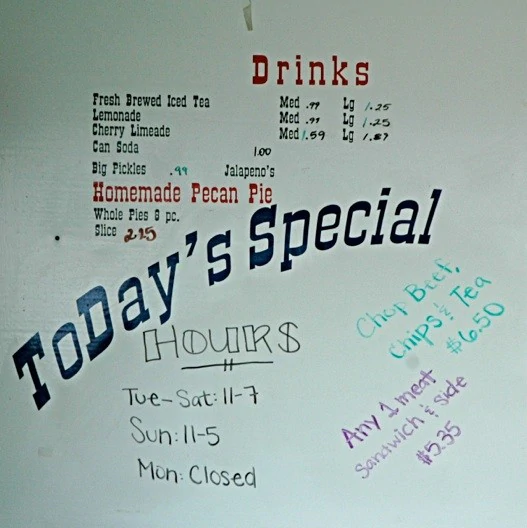 Drinks
Fresh Brewed Iced Tea Med .99 Lg 1.25
Lemonade Med .99 Lg 1.25
Cherry Limeade Med 1.59 Lg 1.87
Can Soda 1.00
Big Pickles .99 Jalapeno's
Homemade Pecan Pie
Whole Pies 8 pc.
Slice 2.25
ToDay's Special
Chop Beef,
Chips & Tea
$6.50
Any 1 meat
Sandwich & side
$5.35
HOURS
Tue-Sat: 11-7
Sun: 11-5
Mon: Closed